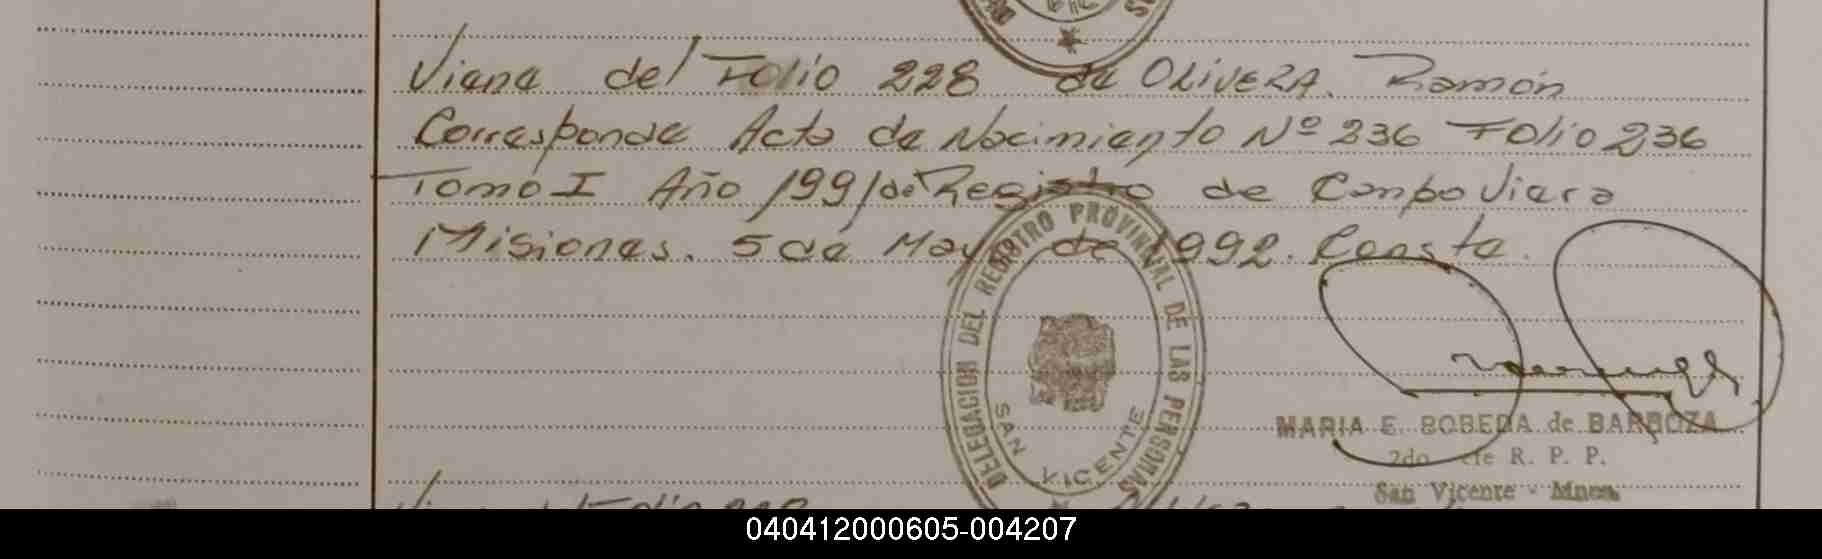 Viene del Folio 228 de OLIVERA. Ramón
Corresponde Acta de Nacimiento Nº 236 Folio 236
Tomo I Año 1991 del Registro de Campo Viera
Misiones. 5 de Mayo de 1992. Consta.
DELEGACION DEL REGISTRO PROVINCIAL DE LAS PERSONAS
SAN VICENTE
MARIA E. BOBEDA de BARBOZA
2do Jefe R. P. P.
San Vicente - Mnes.
040412000605-004207